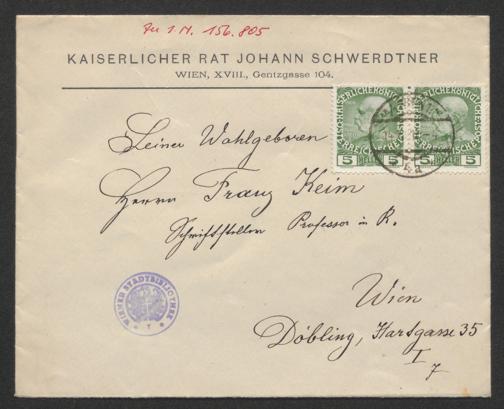 Zu I.N. 156.805
KAISERLICHER RAT JOHANN SCHWERDTNER
WIEN, XVIII., Gentzgasse 104.
Seiner Wohlgeboren
Herrn Franz Keim
Schriftsteller Professor i. R.
Wien
Döbling, Hartgasse 35
I
7
5 HELLER 5
5 HELLER 5
WIENER STADTBIBLIOTHEK